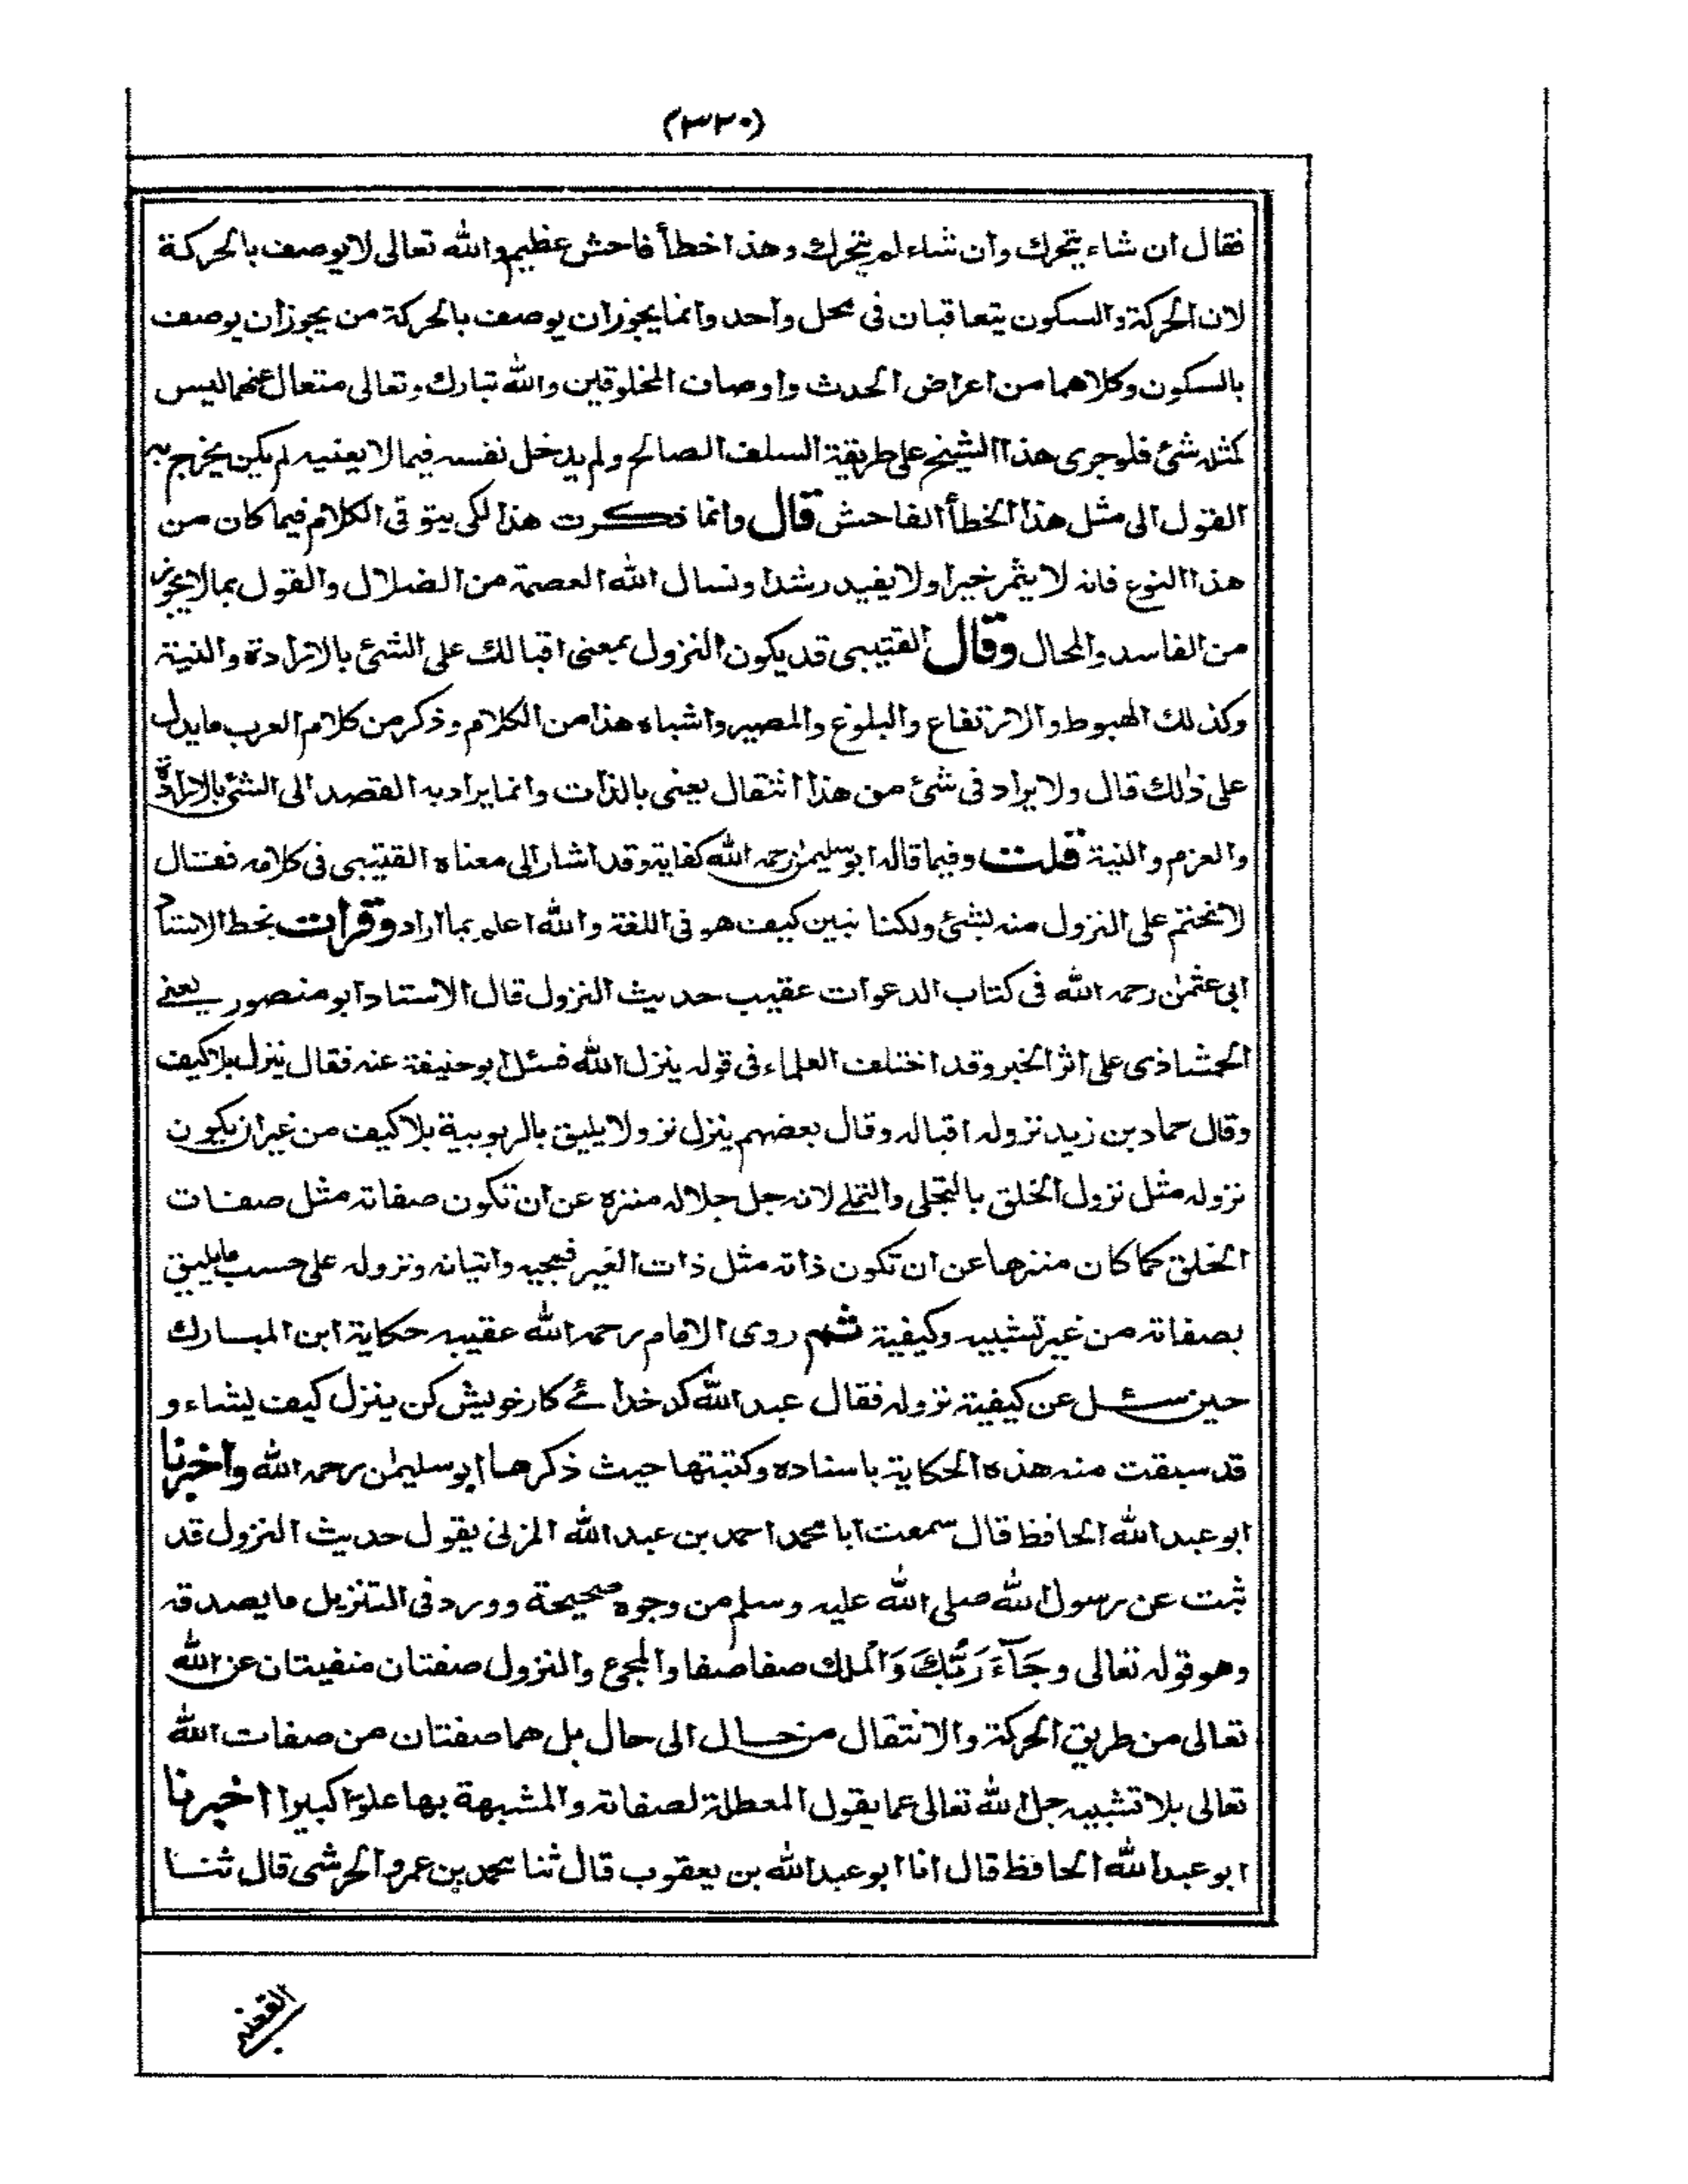 (٣٢٠)
فقال ان شاء يتحرك وان شاء لم يتحرك وهذا خطأ فاحش عظيم والله تعالى لا يوصف بالحركة
لان الحركة والسكون يتعاقبان فى محل واحد وانما يجوز ان يوصف بالحركة من يجوز ان يوصف
بالسكون وكلاهما من اعراض الحدث واوصاف المخلوقين والله تبارك وتعالى متعال عنهما ليس
كمثله شئ فلو جرى هذا الشيخ على طريقة السلف الصالح ولم يدخل نفسه فيما لا يعنيه لم يكن يخرج به
القول الى مثل هذا الخطأ الفاحش قال وانما ذكرت هذا لكى يتوقى الكلام فيما كان من
هذا النوع فانه لا يثمر خيرا ولا يفيد رشدا ونسال الله العصمة من الضلال والقول بما لا يجوز
من الفاسد والمحال وقال القتيبى قد يكون النزول بمعنى اقبالك على الشئ بالارادة والنية
وكذلك الهبوط والارتفاع والبلوغ والمصير واشباه هذا من الكلام وذكر من كلام العرب ما يدل
على ذلك قال ولا يراد فى شئ من هذا انتقال يعنى بالذات وانما يراد به القصد الى الشئ بالارادة
والعزم والنية قلت وفيما قاله ابو سليمٰن رحمه الله كفاية وقد اشار الى معناه القتيبى فى كلامه فقال
لا نحتم على النزول منه بشئ ولكنا نبين كيف هو فى اللغة والله اعلم بما اراد وقرأت بخط الاستاد
ابى عثمٰن رحمه الله فى كتاب الدعوات عقيب حديث النزول قال الاستاد ابو منصور يعنے
الحمشاذى على اثر الخبر وقد اختلف العلماء فى قوله ينزل الله فسئل ابو حنيفة عنه فقال ينزل بلا كيف
وقال حماد بن زيد نزوله اقباله وقال بعضهم ينزل نزولا يليق بالربوبية بلا كيف من غير ان يكون
نزوله مثل نزول الخلق بالتجلى والتملے لانه جل جلاله منزه عن ان تكون صفاته مثل صفات
الخلق كما كان منزها عن ان تكون ذاته مثل ذات الغير فمجيه واتيانه ونزوله على حسب ما يليق
بصفاته من غير تشبيه وكيفية ثم روى الامام رحمه الله عقيبه حكاية ابن المبارك
حين سئل عن كيفية نزوله فقال عبد الله كد خدائے كار خويش كن ينزل كيف يشاء و
قد سبقت منه هذه الحكاية باسناده وكتبتها حيث ذكرها ابو سليمٰن رحمه الله واخبرنا
ابو عبد الله الحافظ قال سمعت ابا محمد احمد بن عبد الله المزنى يقول حديث النزول قد
ثبت عن رسول الله صلى الله عليه وسلم من وجوه صحيحة وورد فى التنزيل ما يصدقه
وهو قوله تعالى وجَآءَ رَبُّكَ وَالْملك صفا صفا والمجئ والنزول صفتان منفيتان عن الله
تعالى من طريق الحركة والانتقال من حال الى حال بل هما صفتان من صفات الله
تعالى بلا تشبيه جل الله تعالى عما يقول المعطلة لصفاته والمشبهة بها علوّا كبيرا اخبرنا
ابو عبد الله الحافظ قال انا ابو عبد الله بن يعقوب قال ثنا محمد بن عمرو الحرشى قال ثنا
القعنبے